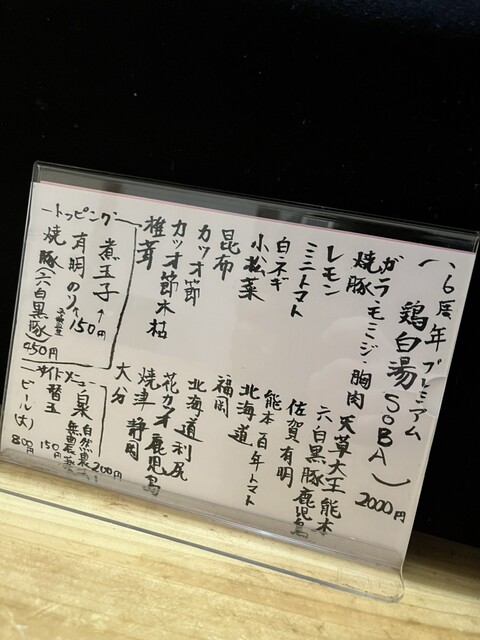 (、6周年 プレミアム
鶏白湯SOBA) 2000円
ガラ・モミジ・胸肉 天草大王 熊本
焼豚 六白黒豚 鹿児島
レモン 佐賀 有明
ミニトマト 熊本 百年トマト
白ネギ 北海道
小松菜 福岡
昆布 北海道利尻
カツオ節 花カツオ 鹿児島
カツオ節木枯 焼津 静岡
椎茸 大分
トッピング
煮玉子 円
有明のり 150
焼豚(六白黒豚) 450円
サイドメニュー
自然農
無農薬 200円
替玉 150円
ビール(大) 800